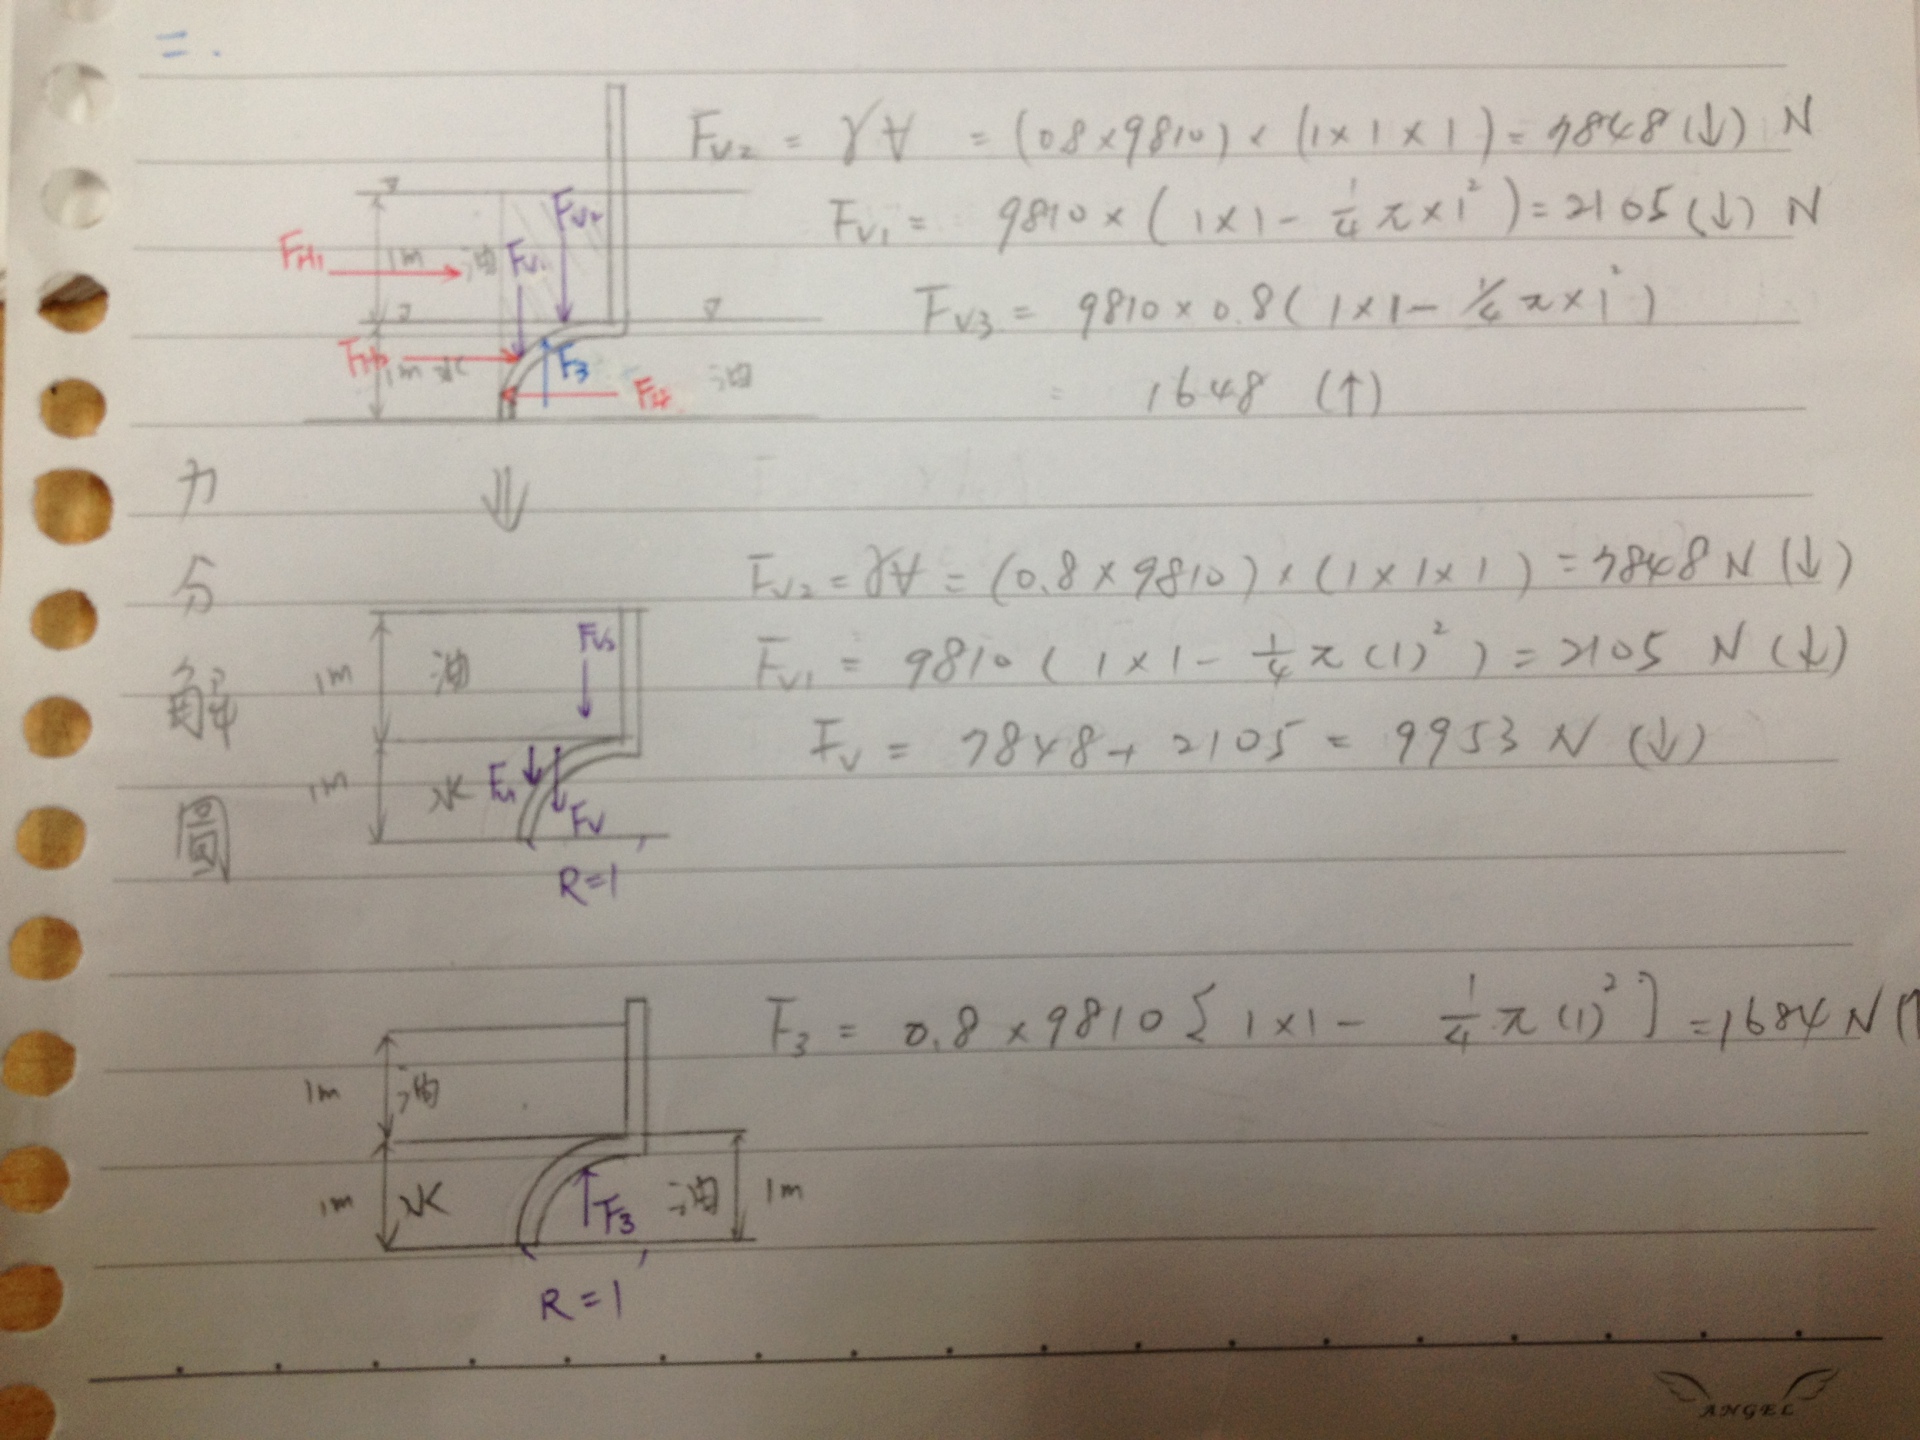 二.
F_V2 = γ∀ = (0.8×9810)×(1×1×1) = 7848(↓) N
F_V1 = 9810×(1×1-¼π×1²) = 2105(↓) N
F_V3 = 9810×0.8(1×1-¼π×1²)
= 1648 (↑)
F_V2
F_H1 1m 油 F_V1
1m 水 F_3 油
力分解圖
⇓
F_V2 = γ∀ = (0.8×9810)×(1×1×1) = 7848 N (↓)
F_V1 = 9810(1×1-¼π(1)²) = 2105 N (↓)
F_V = 7848+2105 = 9953 N (↓)
1m 油
1m 水 F_V1 F_V
R=1
F_3 = 0.8×9810[1×1-¼π(1)²] = 1684 N (↑
1m 油
1m 水 F_3 油 1m
R=1
ANGEL